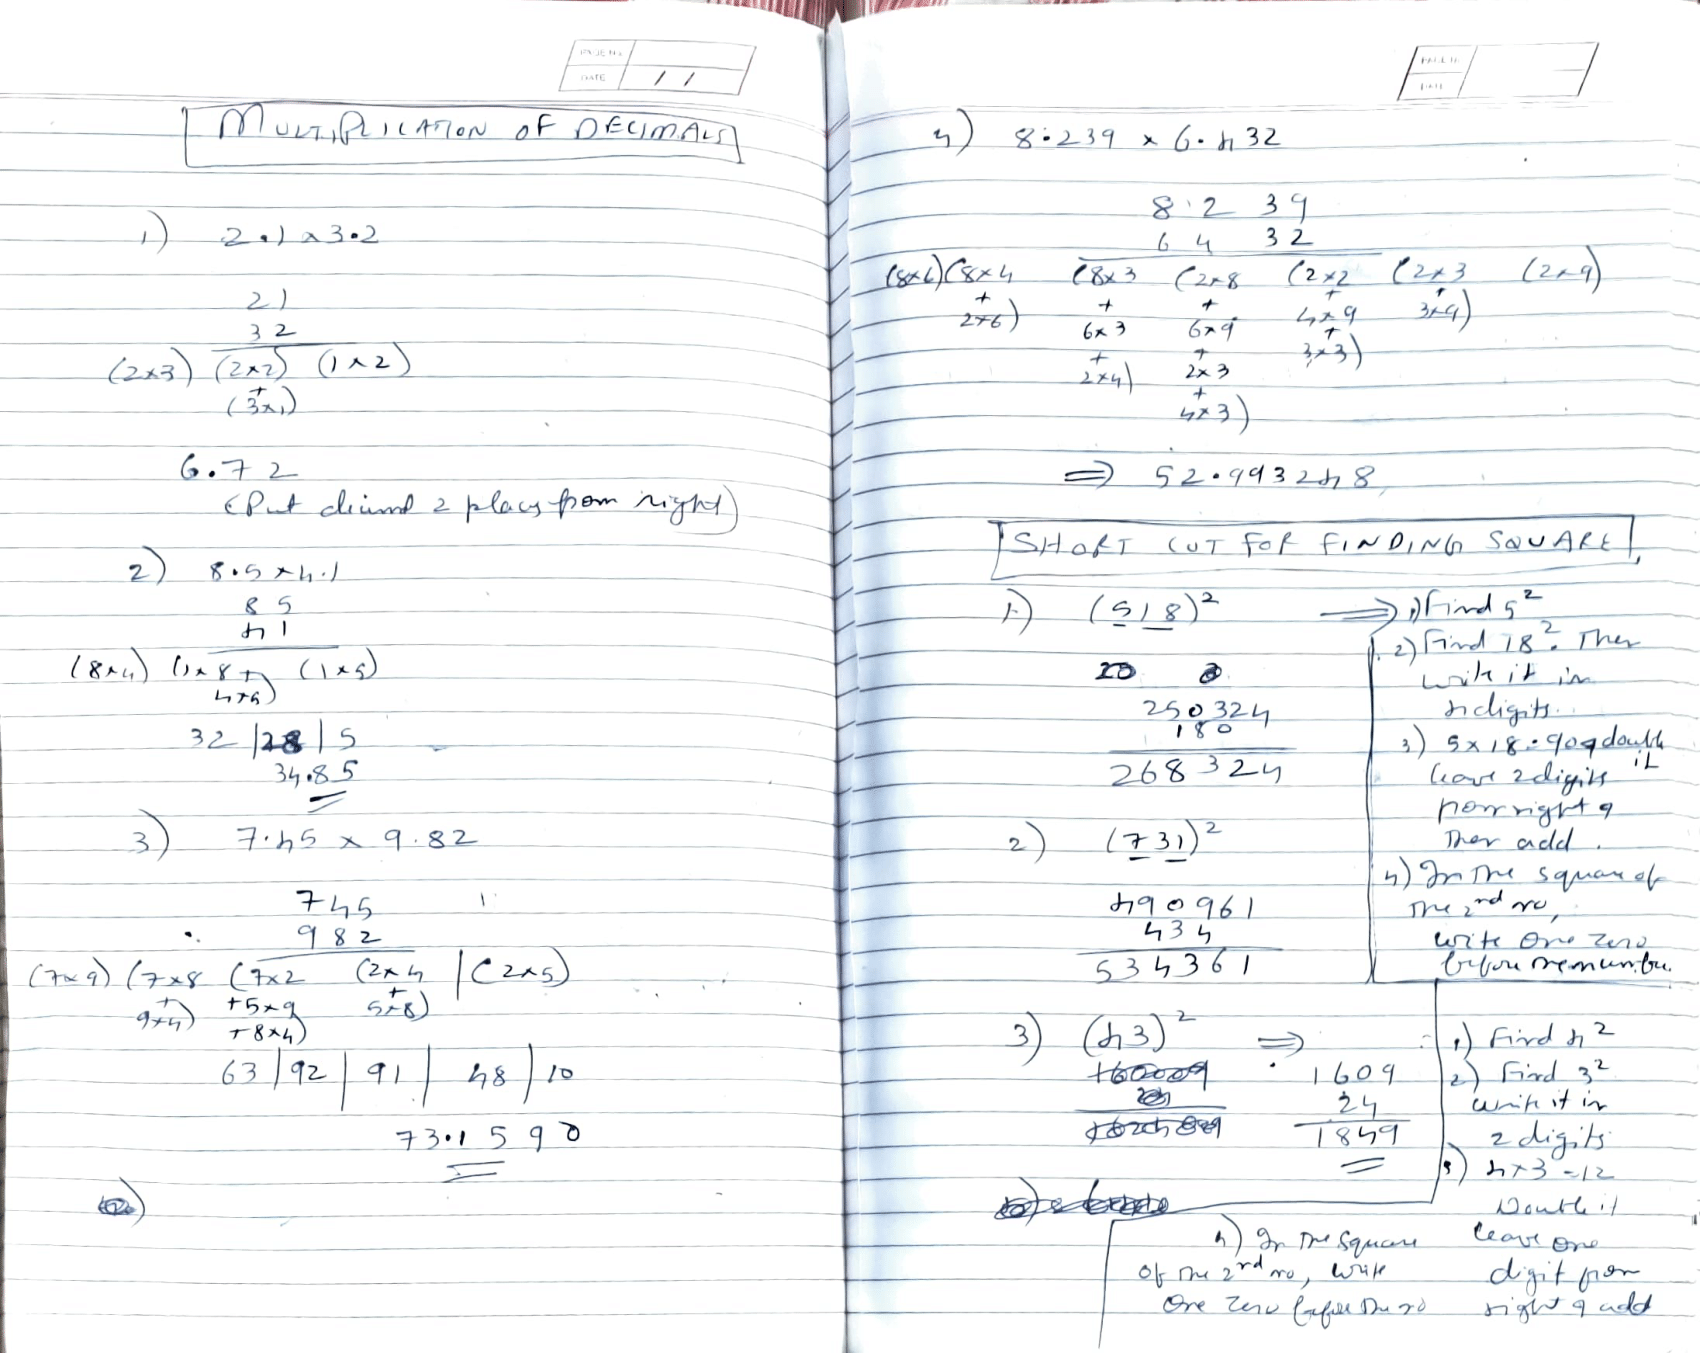 PAGE No.
DATE / /
MULTIPLICATION OF DECIMALS
1) 2.1 x 3.2
21
32
(2x3) (2x2) (1x2)
+
(3x1)
6.72
(Put decimal 2 places from right)
2) 8.5 x 4.1
85
41
(8x4) (1x8+ (1x5)
4x5)
32 | 28 | 5
34.85
3) 7.45 x 9.82
745
982
(7x9) (7x8 (7x2 (2x4 | (2x5)
+ +5x9 +
9x4) +8x4) 5x8)
63 | 92 | 91 | 48 | 10
73.1590
PAGE No.
DATE
4) 8.239 x 6.432
8.2 39
6 4 32
(8x6) (8x4 (8x3 (2x8 (2x2 (2x3 (2x9)
+ + + + +
2x6) 6x3 6x9 4x9 3x9)
+ + +
2x4) 2x3 3x3)
+
4x3)
⇒ 52.993248
SHORT CUT FOR FINDING SQUARE
1) (518)² ⇒ 1) Find 5²
2) Find 18². Then
write it in
4 digits.
250324
180
268324
3) 5x18=90 & double it
leave 2 digits
from right &
Then add.
2) (731)²
490961
434
534361
4) In The square of
The 2nd no,
write One Zero
before The number.
3) (43)² ⇒
1609
24
1849
1) Find 4²
2) Find 3²
write it in
2 digits
3) 4x3=12
Double it
leave one
digit from
right & add
4) In The Square
Of The 2nd no, write
One Zero before The no